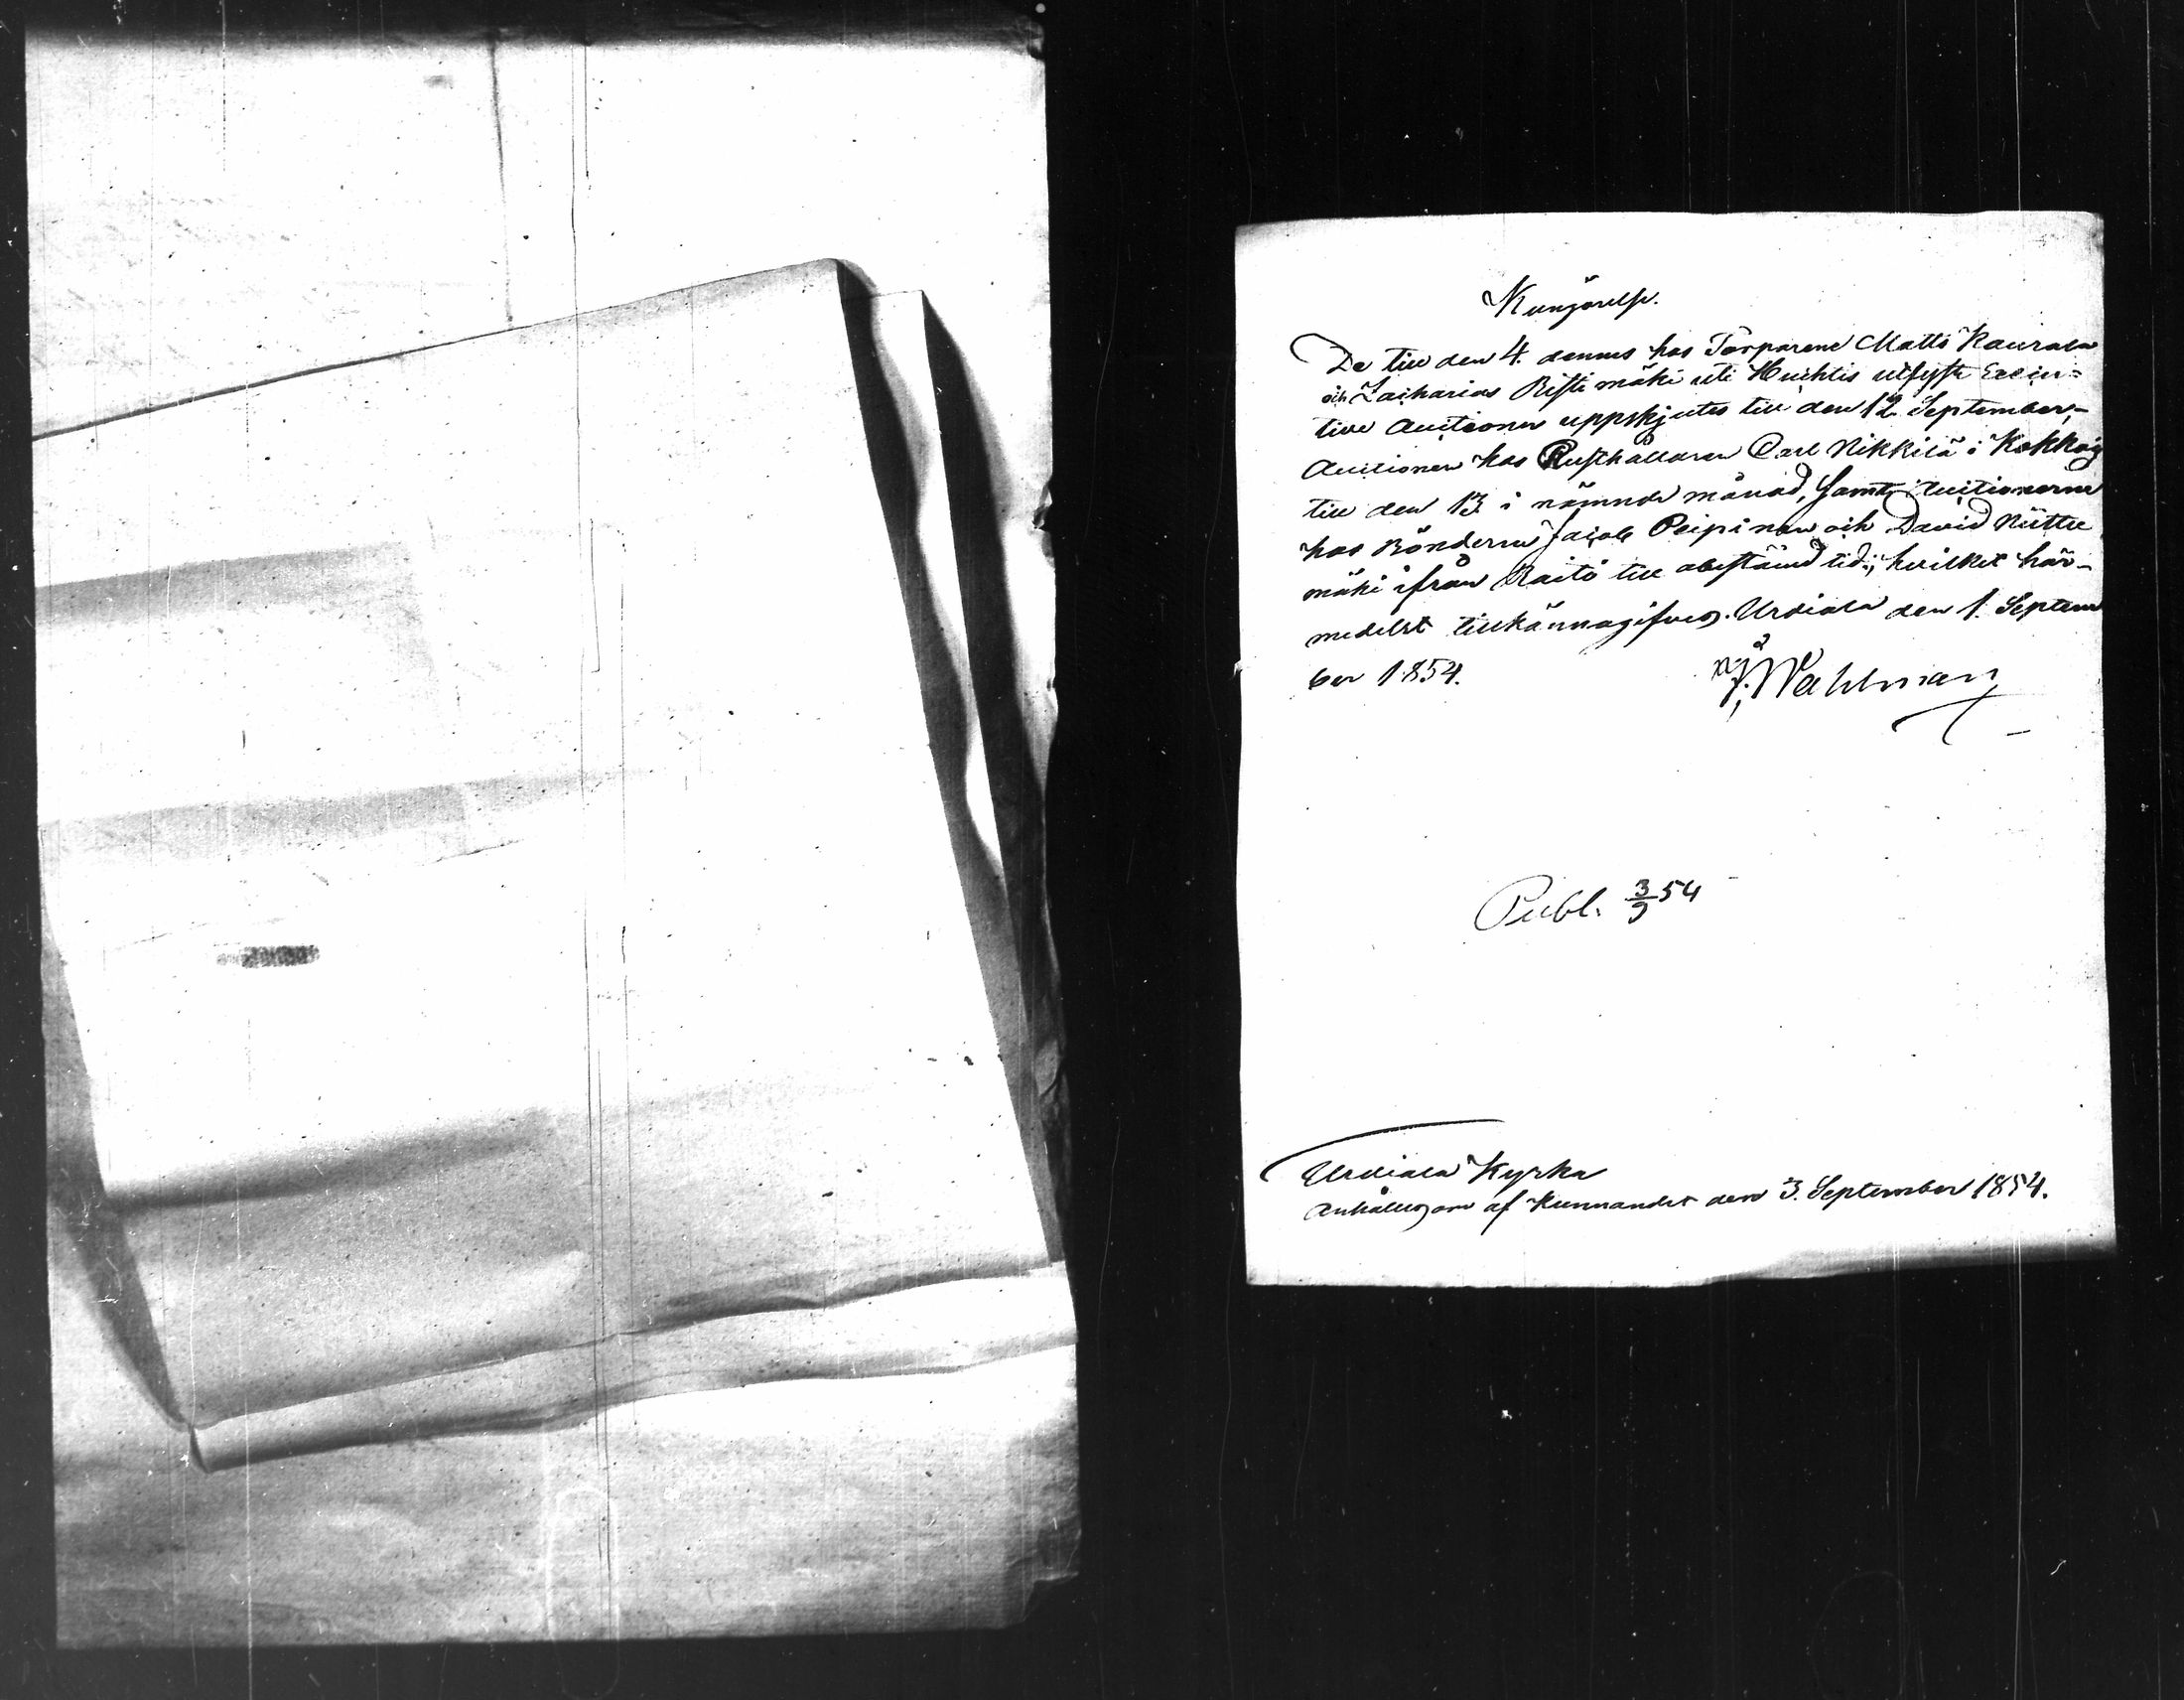 Kungörelse.
De till den 4. dennes hos Torparene Matts Kaurala
och Zacharias Ristimäki uti Huchtis utsyste Execu=
tive Auctioner uppskjutes till den 12 September,-
Auctionen hos Rusthållaren Carl Nikkilä i Kokko
till den 13 i nämnde månad, samt Auctionerne
hos Bönderne Jacob Peipinen och David Niittu
mäki ifrån Raitó till obestämd tid; hvilket här-
medelst tillkännagifves. Urdiala den 1. Septem
ber 1854.
J. Wahlman
Publ. 3/9 54
Urdiala Kyrka
anhålles om af Kunnandet den 3. September 1854.